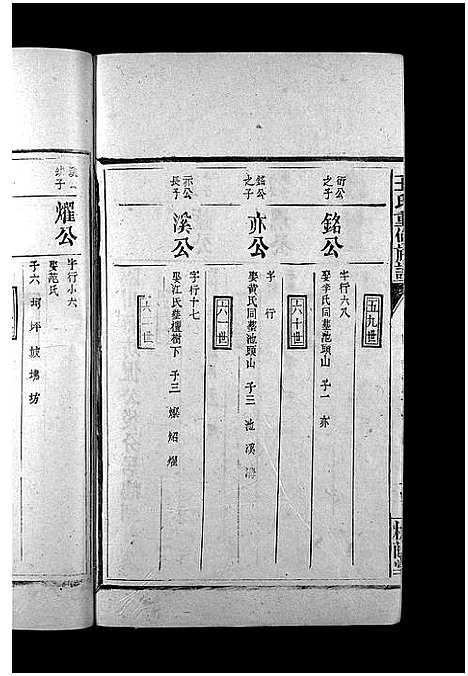 王氏重修族譜
五九世
衍公之子
銘公
字行六八
娶辛氏同墓池頭山 子一 亦
六十世
銘公之子
亦公
字 行
娶黄氏同墓池頭山 子三 池 溪 溝
六一世
亦公長子
溪公
字行十七
娶江氏墓檀樹下 子三 燦 炤 燿
六二世
燿公
字行小六
娶范氏
子六 坷 坪 坡 坊